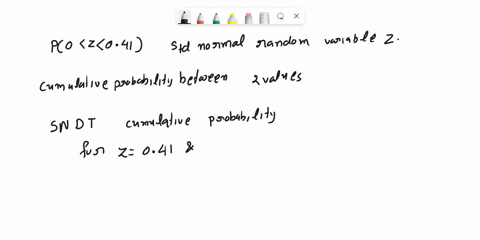 P(0 < Z < 0.41) Std normal random variable Z.
Cumulative probability between 2 values
SNDT cumulative probability
for Z = 0.41 &